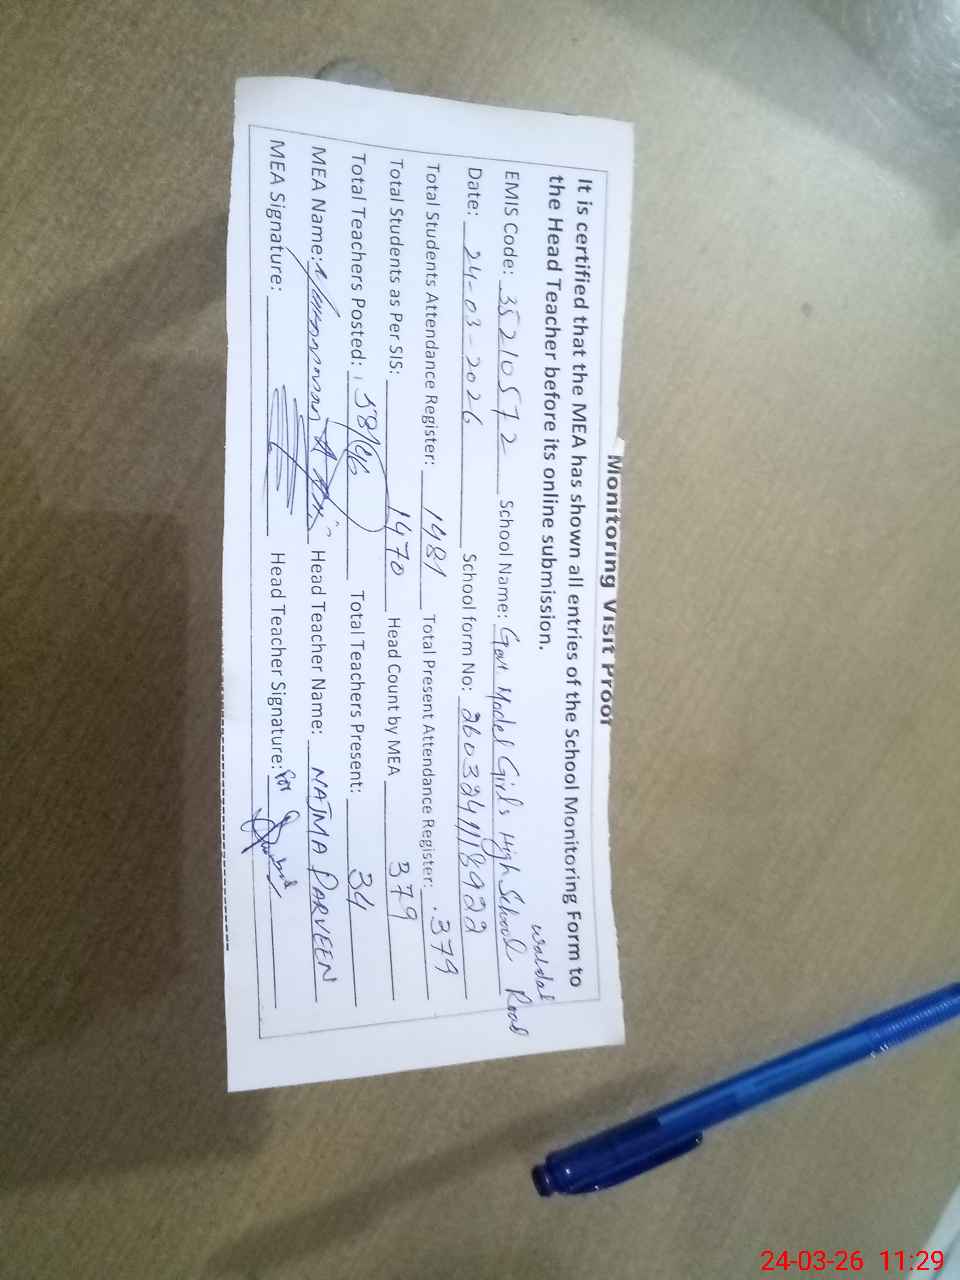 Monitoring Visit Proof
It is certified that the MEA has shown all entries of the School Monitoring Form to
the Head Teacher before its online submission.
EMIS Code: 35210572 School Name: Govt Model Girls High School Road
Waldal
Date: 24-03-2026 School form No: 260324118922
Total Students Attendance Register: 1481 Total Present Attendance Register: 379
Total Students as Per SIS: 1470 Head Count by MEA 379
Total Teachers Posted: 58/ Total Teachers Present: 34
MEA Name: Head Teacher Name: NAJMA PARVEEN
MEA Signature: Head Teacher Signature:
24-03-26 11:29